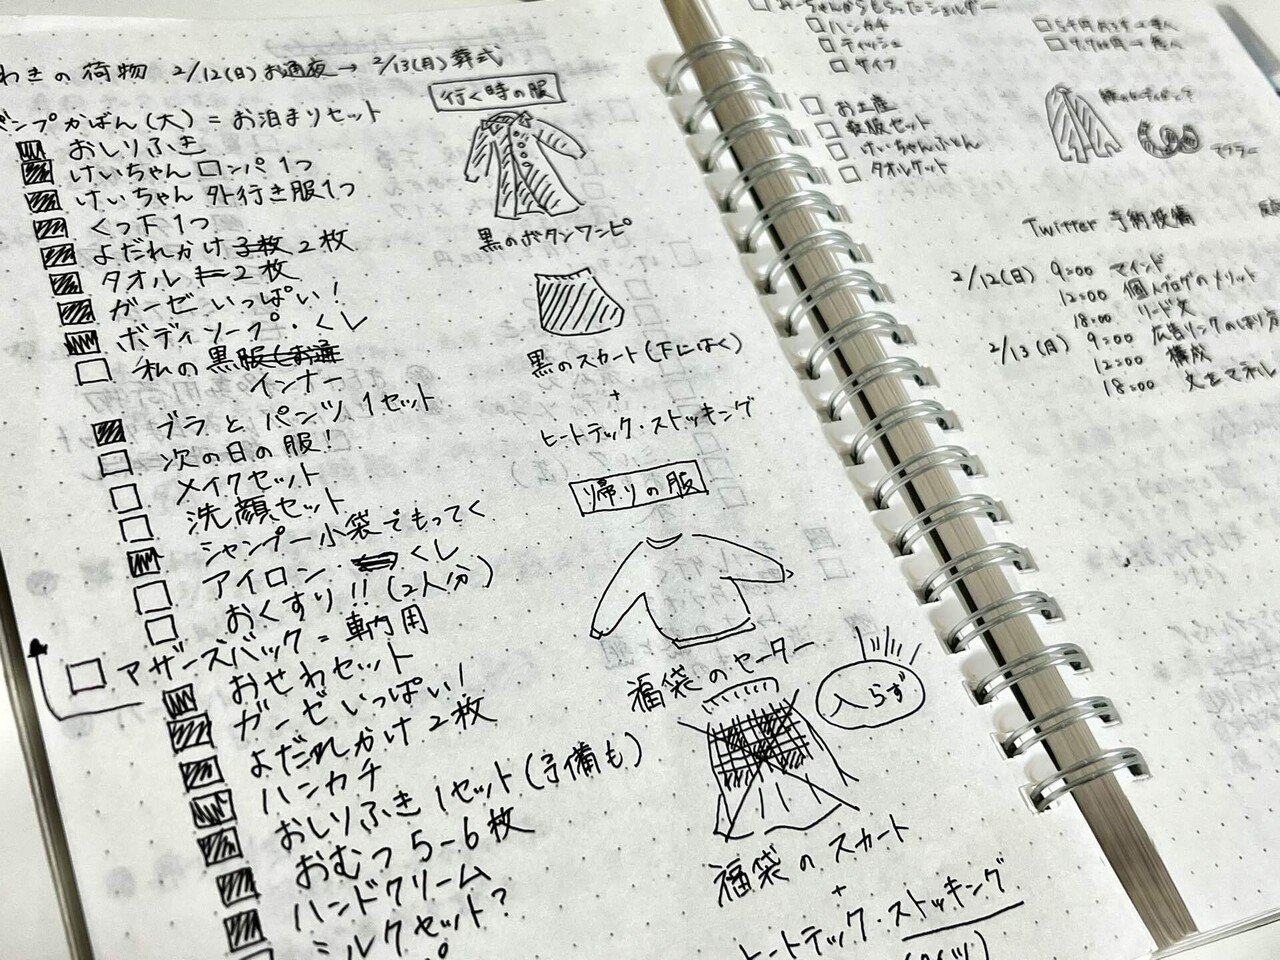 わきの荷物 2/12(日)お通夜→2/13(月)葬式
ンプかばん(大)=お泊まりセット
おしりふき
けいちゃん ロンパ 1つ
けいちゃん 外行き服1つ
くつ下 1つ
よだれかけ 2枚
タオル 2枚
ガーゼ いっぱい!
ボディソープ・くし
私の 黒
インナー
ブラと パンツ 1セット
次の日の服!
メイクセット
洗顔セット
シャンプー小袋でもってく
アイロン くし
おくすり!!(2人分)
マザーズバック=車内用
おせわセット
ガーゼいっぱい!
よだれかけ 2枚
ハンカチ
おしりふき 1セット(予備も)
おむつ 5-6枚
ハンドクリーム
ミルクセット?
行く時の服
黒のボタンワンピ
黒のスカート(下にはく)
+
ヒートテック・ストッキング
帰りの服
福袋のセーター
入らず
福袋のスカート
+
ヒートテック・ストッキング
ハンカチ
ティッシュ
サイフ
お土産
けいちゃんふとん
タオルケット
マフラー
Twitter 予約投稿
2/12(日) 9:00 マインド
12:00 個人ブログのメリット
18:00 リード文
2/13(月) 9:00 広告リンクのはり方
12:00 構成
18:00